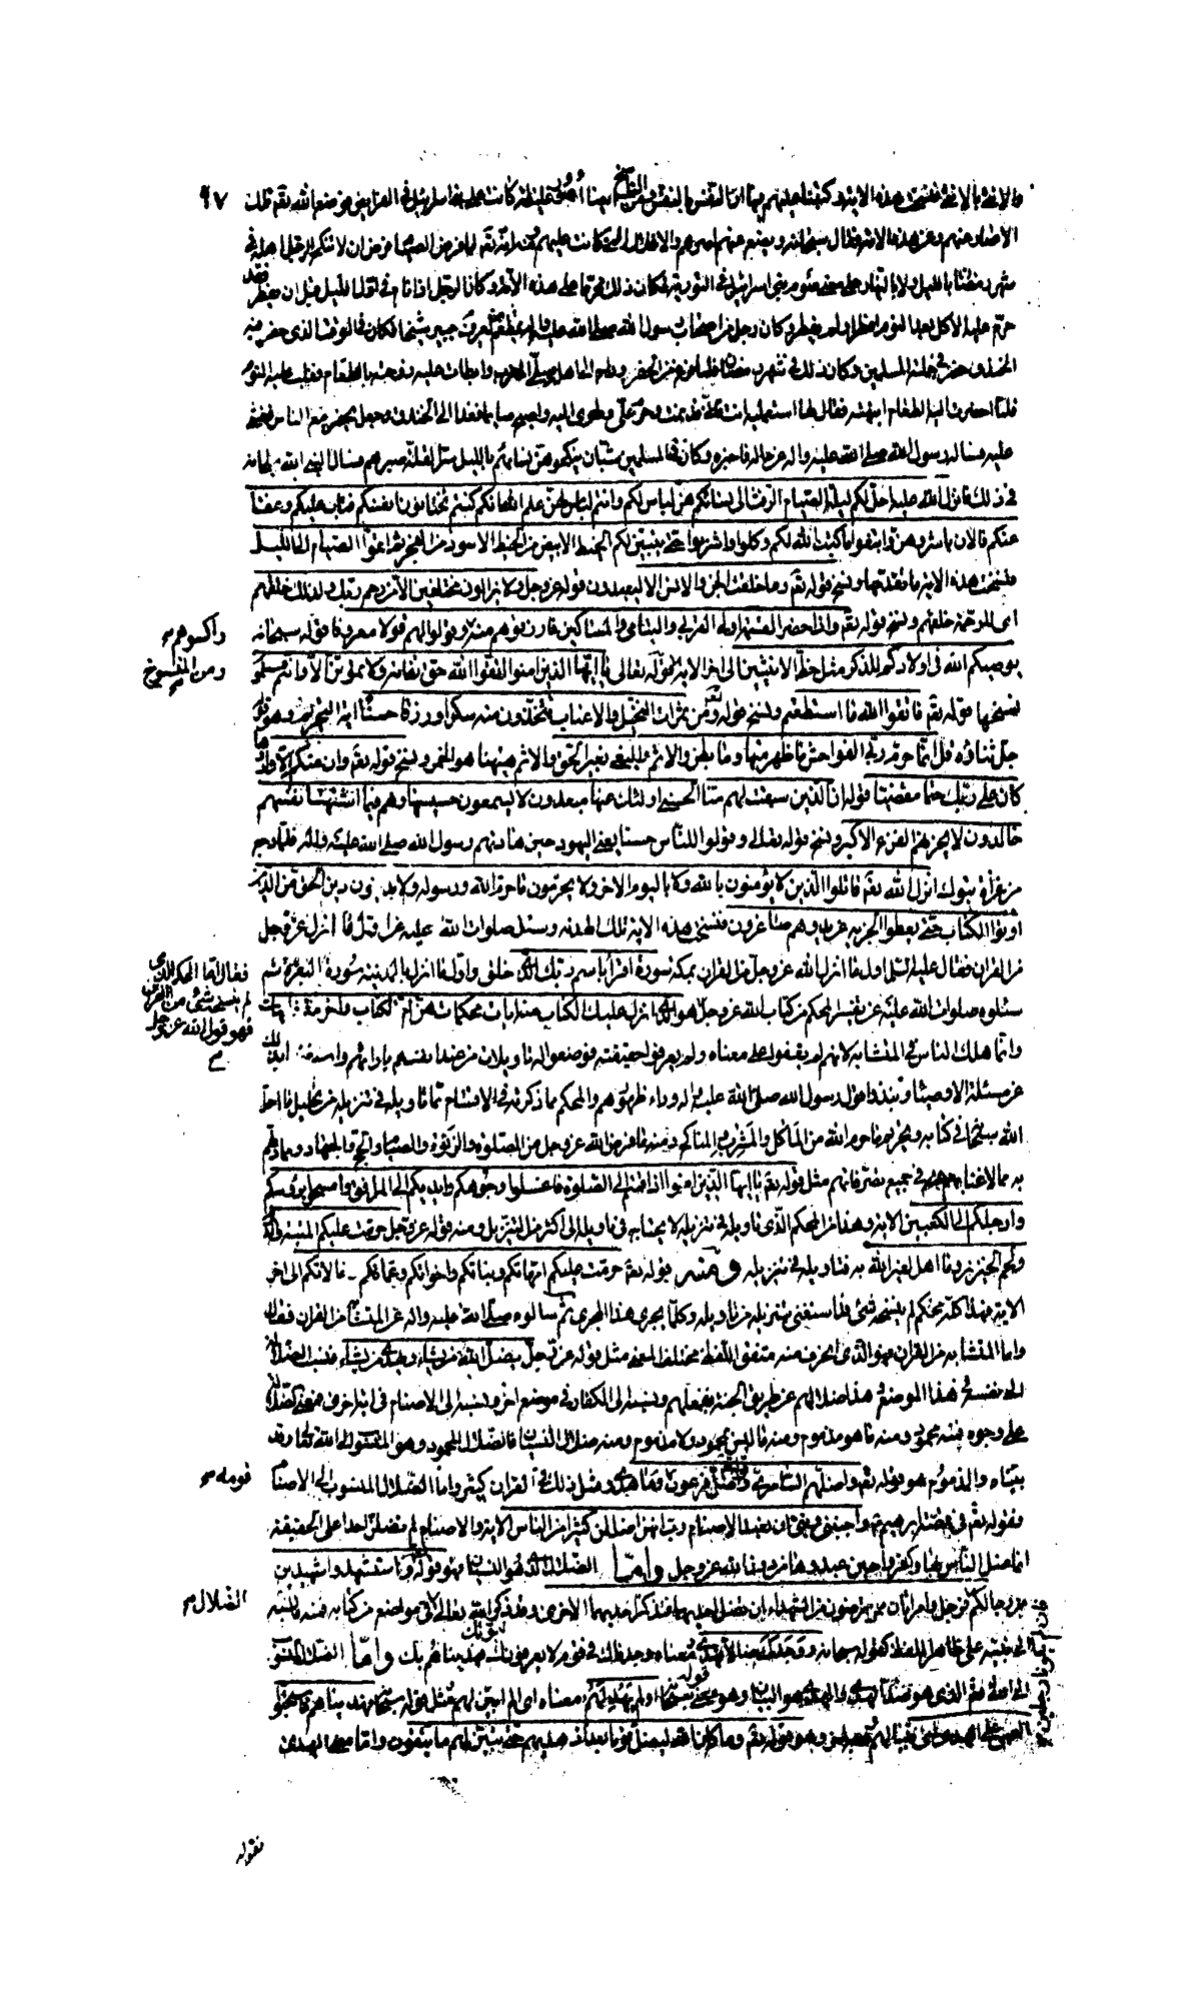 والانثى بالانثى فنسخت هذه الاية وكتبنا عليهم فيها ان النفس بالنفس ومن الناسخ ايضا غليظة كانت على بنى اسرائيل فى الفرايض فوضع الله تعالى تلك ٩٧
الاصار عنهم وعن هذه الامة فقال سبحانه ويضع عنهم اصرهم والاغلال التى كانت عليهم ومنه انه تعالى لما فرض الصيام فرض ان لا ينكح الرجل اهله فى
شهر رمضان بالليل ولا بالنهار على معنى صوم بنى اسرائيل فى التورية فكان ذلك محرما على هذه الامة وكان الرجل اذا نام فى اول الليل قبل ان يفطر فقد
حرم عليه الاكل بعد النوم افطر او لم يفطر وكان رجل من اصحاب رسول الله صلى الله عليه واله يعرف بمطعم بن جبير شيخا فكان فى الوقت الذى حفر فيه
الخندق حفر فى جملة المسلمين وكان ذلك فى شهر رمضان فلما فرغ من الحفر وراح الى اهله صلى المغرب وابطات عليه زوجته بالطعام فغلب عليه النوم
فلما احضرت اليه الطعام انبهته فقال لها استعمليه انت فانى قد نمت وحرم على وطوى اليه واصبح صايما فغدا الى الخندق وجعل يحفر مع الناس فغشى
عليه فساله رسول الله صلى الله عليه واله عن حاله فاخبره وكان فى المسلمين شبان ينكحون نسائهم بالليل سرا لقلة صبرهم فسال النبى الله سبحانه
فى ذلك فانزل الله عليه احل لكم ليلة الصيام الرفث الى نسائكم هن لباس لكم وانتم لباس لهن علم الله انكم كنتم تختانون انفسكم فتاب عليكم وعفا
عنكم فالان باشروهن وابتغوا ما كتب الله لكم وكلوا واشربوا حتى يتبين لكم الخيط الابيض من الخيط الاسود من الفجر ثم اتموا الصيام الى الليل
فنسخت هذه الاية ما تقدمها ونسخ قوله تعالى وما خلقت الجن والانس الا ليعبدون قوله عز وجل ولا يزالون مختلفين الا من رحم ربك ولذلك خلقهم
اى للرحمة خلقهم ونسخ قوله تعالى واذا حضر القسمة اولوا القربى واليتامى والمساكين فارزقوهم منه وقولوا لهم قولا معروفا قوله سبحانه
واكسوهم
يوصيكم الله فى اولادكم للذكر مثل حظ الانثيين الى اخر الاية قوله تعالى يا ايها الذين امنوا اتقوا الله حق تقاته ولا تموتن الا وانتم مسلمون
ومن المنسوخ
نسخها قوله تعالى فاتقوا الله ما استطعتم ونسخ قوله تعالى ومن ثمرات النخيل والاعناب تتخذون منه سكرا ورزقا حسنا اية التحريم وهو قوله
جل ثناؤه قل انما حرم ربى الفواحش ما ظهر منها وما بطن والاثم والبغى بغير الحق والاثم هيهنا هو الخمر ونسخ قوله تعالى وان منكم الا واردها
كان على ربك حتما مقضيا قوله ان الذين سبقت لهم منا الحسنى اولئك عنها مبعدون لا يسمعون حسيسها وهم فيما اشتهت انفسهم
خالدون لا يحزنهم الفزع الاكبر ونسخ قوله تعالى وقولوا للناس حسنا يعنى اليهود حين هادنهم رسول الله صلى الله عليه واله فلما رجع
من غزاة تبوك انزل الله تعالى قاتلوا الذين لا يؤمنون بالله ولا باليوم الاخر ولا يحرمون ما حرم الله ورسوله ولا يدينون دين الحق من الذين
اوتوا الكتاب حتى يعطوا الجزية عن يد وهم صاغرون فنسخت هذه الاية تلك الهدنة وسئل صلوات الله عليه عن اول ما انزل عز وجل
من القران فقال عليه السلم اول ما انزل الله عز وجل من القران بمكة سورة اقرا باسم ربك الذى خلق واول ما انزل بالمدينة سورة البقرة ثم
سئلوه صلوات الله عليه عن تفسير المحكم من كتاب الله عز وجل هو الذى انزل عليك الكتاب منه ايات محكمات هن ام الكتاب واخر متشابهات
فقال اما المحكم الذى
لم ينسخه شئ من القران
فهو قول الله عز وجل
وانما هلك الناس فى المتشابه لانهم لم يقفوا على معناه ولم يعرفوا حقيقته فوضعوا له تاويلات من عند انفسهم بارائهم واستغنوا بذلك
عن مسئلة الاوصياء ونبذوا قول رسول الله صلى الله عليه واله وراء ظهورهم والمحكم ما ذكرته فى الاقسام مما تاويله فى تنزيله من تحليل ما احل
الله سبحانه فى كتابه وتحريم ما حرم الله من الماكل والمشرب والمناكح ومنه ما فرض الله عز وجل من الصلوة والزكوة والصيام والحج والجهاد ومما دلهم
به مما لا غنا بهم عنه فى جميع تصرفاتهم مثل قوله تعالى يا ايها الذين امنوا اذا قمتم الى الصلوة فاغسلوا وجوهكم وايديكم الى المرافق وامسحوا برؤسكم
وارجلكم الى الكعبين الاية وهذا من المحكم الذى تاويله فى تنزيله لا يحتاج فى تاويله الى اكثر من التنزيل ومنه قوله عز وجل حرمت عليكم الميتة والدم
ولحم الخنزير وما اهل لغير الله به فتاويله فى تنزيله ومنه قوله تعالى حرمت عليكم امهاتكم وبناتكم واخواتكم وعماتكم وخالاتكم الى اخر
الاية فهذا كله محكم لم ينسخه شئ قد استغنى بتنزيله من تاويله وكلما يجرى هذا المجرى ثم سالوه صلى الله عليه واله عن المتشابه من القران فقال
واما المتشابه من القران فهو الذى انحرف منه متفق اللفظ مختلف المعنى مثل قوله عز وجل يضل الله من يشاء ويهدى من يشاء فنسب الضلالة
الى نفسه فى هذا الموضع وهذا ضلالهم عن طريق الجنة بفعلهم ونسبه الى الكفار فى موضع اخر ونسبه الى الاصنام فى اية اخرى فمعنى الضلالة
على وجوه فمنه محمود ومنه ما هو مذموم ومنه ما ليس بمحمود ولا مذموم ومنه ضلال النسيان فالضلال المحمود وهو المنسوب الى الله تعالى وقد
بيناه والمذموم هو قوله تعالى واضلهم السامرى وقوله واضل فرعون قومه وما هدى ومثل ذلك فى القران كثير واما الضلال المنسوب الى الاصنام
قومه
فقوله تعالى فى قصة ابرهيم واجنبنى وبنى ان نعبد الاصنام رب انهن اضللن كثيرا من الناس الاية والاصنام لم تضلن احدا على الحقيقة
انما ضل الناس بها وكفروا حين عبدوها من دون الله عز وجل واما الضلال الذى هو النسيان فهو قوله تعالى واستشهدوا شهيدين
من رجالكم فرجل وامراتان ممن ترضون من الشهداء ان تضل احديهما فتذكر احديهما الاخرى وقد ذكر الله تعالى فى مواضع من كتابه فمنه ما نسبه
الضلال
الى نبيه على ظاهر اللفظ كقوله سبحانه ووجدك ضالا فهدى معناه وجدناك فى قوم لا يعرفون نبوتك فهديناهم بك واما الضلال المنسوب
الى الله تعالى الذى هو ضد الهدى والهدى هو البيان وهو معنى قوله سبحانه اولم يهد لهم معناه اى الم ابين لهم مثل قوله سبحانه فهديناهم فاستحبوا
العمى على الهدى اى بينا لهم وهو قوله تعالى وما كان الله ليضل قوما بعد اذ هديهم حتى يبين لهم ما يتقون واما معنى الهدى
فقوله